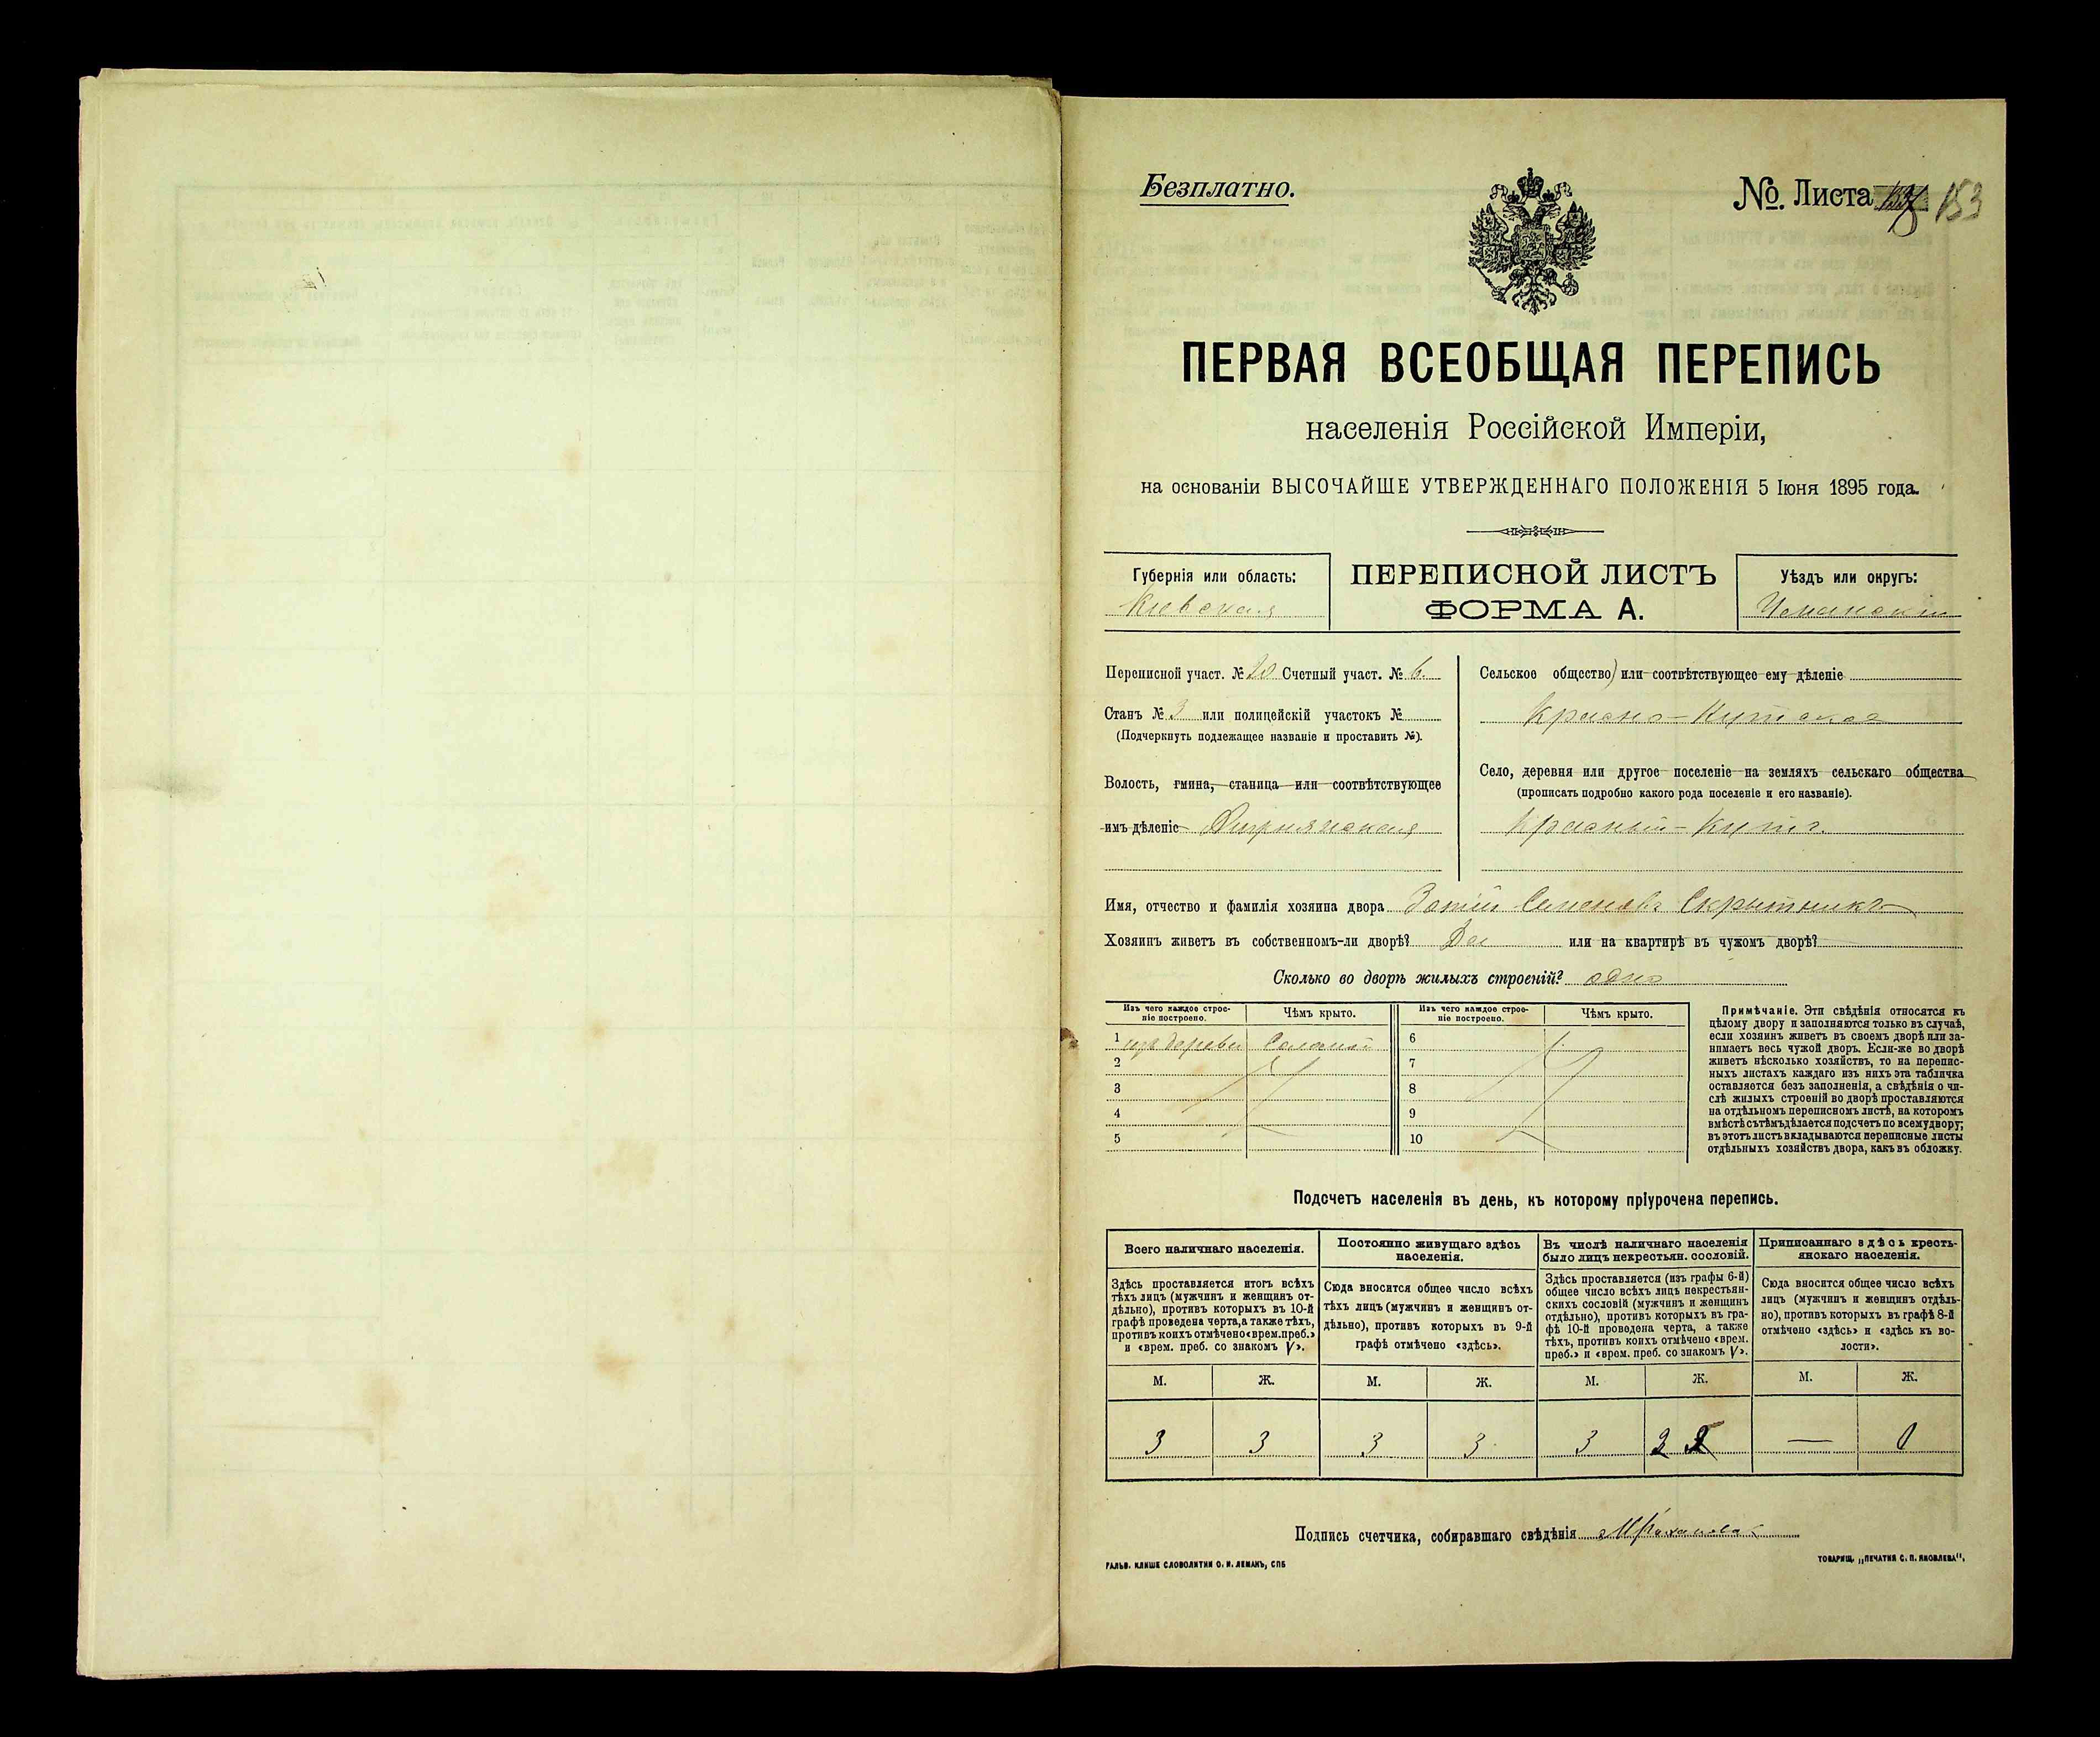 Безплатно.
№ Листа 153
ПЕРВАЯ ВСЕОБЩАЯ ПЕРЕПИСЬ
населенія Россійской Имперіи,
на основаніи ВЫСОЧАЙШЕ УТВЕРЖДЕННАГО ПОЛОЖЕНІЯ 5 Іюня 1895 года.
Губернія или область:
Кіевская
ПЕРЕПИСНОЙ ЛИСТЪ
ФОРМА А.
Уѣздъ или округъ:
Уманскій
Переписной участ. № 20 Счетный участ. № 6.
Станъ № 3 или полицейскій участокъ №
(Подчеркнуть подлежащее названіе и проставить №).
Волость, гмина, станица или соотвѣтствующее
имъ дѣленіе
Сельское общество) или соотвѣтствующее ему дѣленіе
Красно-Кутское
Село, деревня или другое поселеніе на земляхъ сельскаго общества
(прописать подробно какого рода поселеніе и его названіе).
Красный-Кутъ.
Имя, отчество и фамилія хозяина двора Семеновъ Скрытникъ
Хозяинъ живетъ въ собственномъ-ли дворѣ? Да или на квартирѣ въ чужомъ дворѣ?
Сколько во дворѣ жилыхъ строеній? одно
Изъ чего каждое строе-
ніе построено.
Чѣмъ крыто.
Изъ чего каждое строе-
ніе построено.
Чѣмъ крыто.
1 изъ дерева Соломой
2
3
4
5
6
7
8
9
10
Примѣчаніе. Эти свѣдѣнія относятся къ
цѣлому двору и заполняются только въ случаѣ,
если хозяинъ живетъ въ своемъ дворѣ или за-
нимаетъ весь чужой дворъ. Если-же во дворѣ
живетъ нѣсколько хозяйствъ, то на перепис-
ныхъ листахъ каждаго изъ нихъ эта табличка
оставляется безъ заполненія, а свѣдѣнія о чи-
слѣ жилыхъ строеній во дворѣ проставляются
на отдѣльномъ переписномъ листѣ, на которомъ
вмѣстѣ съ тѣмъ дѣлается подсчетъ по всему двору;
въ этотъ листъ вкладываются переписные листы
отдѣльныхъ хозяйствъ двора, какъ въ обложку.
Подсчетъ населенія въ день, къ которому пріурочена перепись.
Всего наличнаго населенія.
Здѣсь проставляется итогъ всѣхъ
тѣхъ лицъ (мужчинъ и женщинъ от-
дѣльно), противъ которыхъ въ 10-й
графѣ проведена черта, а также тѣхъ,
противъ коихъ отмѣчено «врем. преб.»
и «врем. преб. со знакомъ V».
Постоянно живущаго здѣсь
населенія.
Сюда вносится общее число всѣхъ
тѣхъ лицъ (мужчинъ и женщинъ от-
дѣльно), противъ которыхъ въ 9-й
графѣ отмѣчено «здѣсь».
Въ числѣ наличнаго населенія
было лицъ некрестьян. сословій.
Здѣсь проставляется (изъ графы 6-й)
общее число всѣхъ лицъ некрестьян-
скихъ сословій (мужчинъ и женщинъ
отдѣльно), противъ которыхъ въ гра-
фѣ 10-й проведена черта, а также
тѣхъ, противъ коихъ отмѣчено «врем.
преб.» и «врем. преб. со знакомъ V».
Приписаннаго здѣсь кресть-
янскаго населенія.
Сюда вносится общее число всѣхъ
лицъ (мужчинъ и женщинъ отдѣль-
но), противъ которыхъ въ графѣ 8-й
отмѣчено «здѣсь» и «здѣсь къ во-
лости».
М. Ж. М. Ж. М. Ж. М. Ж.
3 3 3 3 3 2 —
Подпись счетчика, собиравшаго свѣдѣнія
ГАЛЬВ. КЛИШЕ СЛОВОЛИТНИ О. И. ЛЕМАНЪ, СПБ
ТОВАРИЩ. „ПЕЧАТНЯ С. П. ЯКОВЛЕВА".